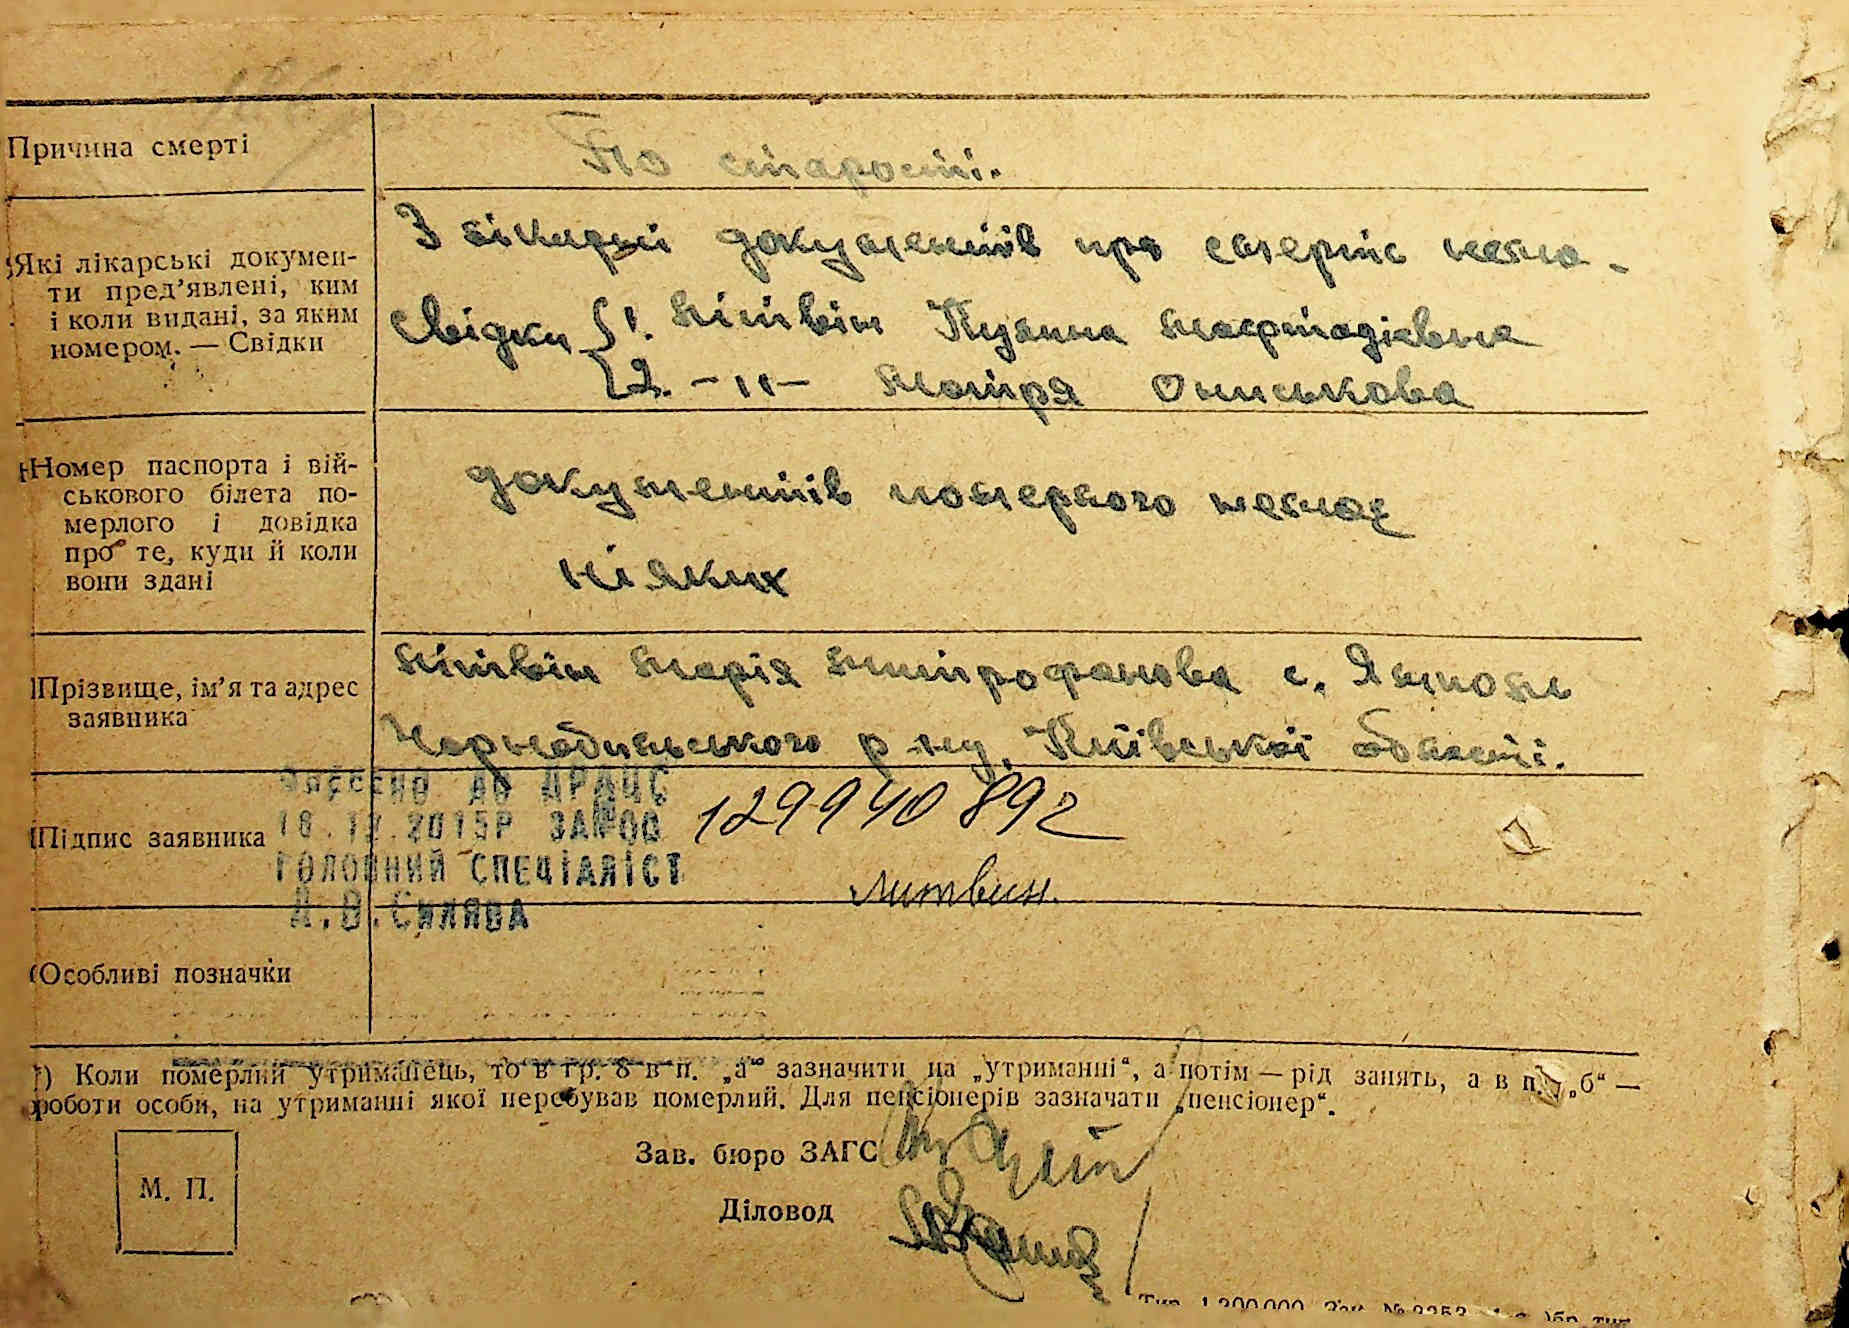 Причина смерті
По старості.
Які лікарські докумен-
ти пред'явлені, ким
і коли видані, за яким
номером. — Свідки
З лікарьскі документів про смерть нема -
Свідки 1. Літвін Марта
2. —"— Мотря Ониськова
Номер паспорта і вій-
ськового білета по-
мерлого і довідка
про те, куди й коли
вони здані
документів померлого немає
ніяких
Прізвище, ім'я та адрес
заявника
Літвін Марія Митрофанова с. Ямполь
Чорнобильського р-ну, Київської області.
Підпис заявника
ВНЕСЕНО ДО ДРАЦС
18.12.2015Р ЗА №00
129940892
ГОЛОВНИЙ СПЕЦІАЛІСТ
Литвин.
А.В.СИЛЯВА
Особливі позначки
) Коли померлий утриманець, то в гр. 8 в п. „а“ зазначити на „утриманні“, а потім — рід занять, а в п. „б“ —
роботи особи, на утриманні якої перебував померлий. Для пенсіонерів зазначати „пенсіонер“.
Зав. бюро ЗАГС
М. П.
Діловод
Тир. 1.200.000 Зак. № 3253